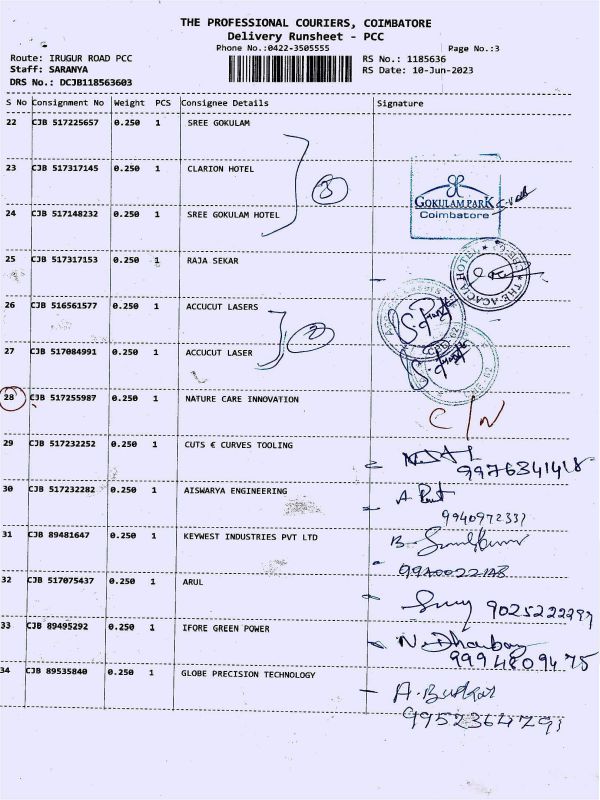 THE PROFESSIONAL COURIERS, COIMBATORE
Delivery Runsheet - PCC
Phone No.:0422-3505555 Page No.:3
Route: IRUGUR ROAD PCC RS No.: 1185636
Staff: SARANYA RS Date: 10-Jun-2023
DRS No.: DCJB118563603
S No Consignment No Weight PCS Consignee Details Signature
22 CJB 517225657 0.250 1 SREE GOKULAM
23 CJB 517317145 0.250 1 CLARION HOTEL
3
GOKULAM PARK
Coimbatore
24 CJB 517148232 0.250 1 SREE GOKULAM HOTEL
25 CJB 517317153 0.250 1 RAJA SEKAR
THE ACACIA HOTEL
26 CJB 516561577 0.250 1 ACCUCUT LASERS
2
27 CJB 517084991 0.250 1 ACCUCUT LASER
28 CJB 517255987 0.250 1 NATURE CARE INNOVATION
C/N
29 CJB 517232252 0.250 1 CUTS € CURVES TOOLING
9976341418
30 CJB 517232282 0.250 1 AISWARYA ENGINEERING
9940972337
31 CJB 89481647 0.250 1 KEYWEST INDUSTRIES PVT LTD
32 CJB 517075437 0.250 1 ARUL
9025222299
33 CJB 89495292 0.250 1 IFORE GREEN POWER
9994809475
34 CJB 89535840 0.250 1 GLOBE PRECISION TECHNOLOGY
9952364791